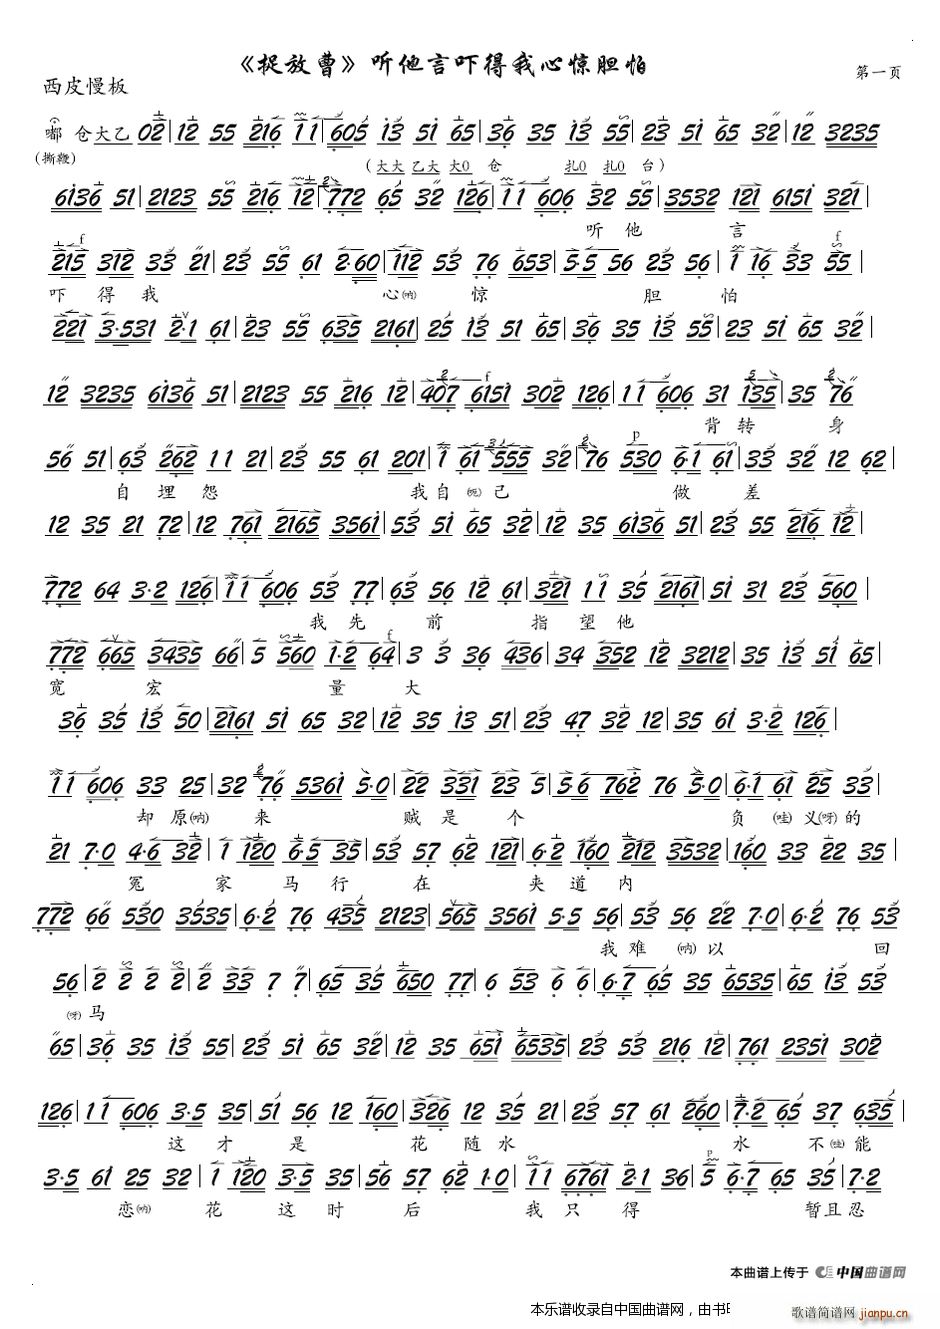 《捉放曹》听他言吓得我心惊胆怕
西皮慢板
第一页
嘟 仓大乙 02| 12 55 216 11| 605 13 51 65| 36 35 13 55| 23 51 65 32| 12 3235
(撕鞭) (大大 乙大 大0 仓 扎0 扎0 台)
6136 51| 2123 55 216 12| 772 65 32 126| 11 606 32 55| 3532 121 6151 321|
听 他 言
215 312 33 21| 23 55 61 2·60| 112 53 76 653| 5·5 56 23 56| 1 16 33 55|
吓 得 我 心(呐) 惊 胆 怕
221 3·531 2·1 61| 23 55 635 2161| 25 13 51 65| 36 35 13 55| 23 51 65 32|
12 3235 6136 51| 2123 55 216 12| 407 6151 302 126| 11 606 31 135| 35 76
背 转 身
56 51| 63 262 11 21| 23 55 61 201| 1 61 555 32| 76 530 6·1 61| 33 32 12 62|
自 埋 怨 我 自 己 做 差
12 35 21 72| 12 761 2165 3561| 53 51 65 32| 12 35 6136 51| 23 55 216 12|
772 64 3·2 126| 11 606 53 77| 63 56 12 61| 321 11 35 2161| 51 31 23 560|
我 先 前 指 望 他
772 665 3435 66| 5 560 1·2 64| 3 3 36 436| 34 352 12 3212| 35 13 51 65|
宽 宏 量 大
36 35 13 50| 2161 51 65 32| 12 35 13 51| 23 47 32 12| 35 61 3·2 126|
11 606 33 25| 32 76 5361 5·0| 22 331 23 5| 5·6 762 76 5·0| 6·1 61 35 33|
却 原(呐) 来 贼 是 个 负 (哇) 义(呀)的
21 7·0 4·6 32| 1 120 6·5 35| 53 57 62 121| 6·2 160 212 3532| 160 33 22 35|
冤 家 马 行 在 夹 道 内
772 66 530 3535| 6·2 76 435 2123| 565 3561 5·5 56| 53 56 22 7·0| 6·2 76 53
我 难 (呐) 以 回
56| 2 2 2 2| 2 33 7 7| 65 35 650 77| 6 53 6 6| 6·7 65 35 6535| 65 13 53
(呀)马
65| 36 35 13 55| 23 51 65 32| 12 35 651 6535| 23 53 216 12| 761 2351 302
126| 11 606 3·5 35| 51 56 12 160| 326 12 35 21| 23 57 61 260| 7·2 65 37 635|
这 才 是 花 随 水 水 不(哇)能
3·5 61 25 32| 1 120 3·5 35| 56 57 62 1·0| 11 6761 2·1 36| 5 6·7 65 35| 7·2
恋(呐) 花 这 时 后 我 只 得 暂且忍
本曲谱上传于 中国曲谱网
本乐谱收录自中国曲谱网，由书
歌谱简谱网
jianpu.cn